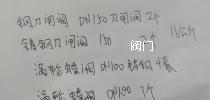 钢刀闸阀 DN150刀闸阀 2个
铸钢刀闸阀 150 个
阀门
涡轮蝶阀 DN100铸钢 4套
涡轮蝶阀 DN 1个